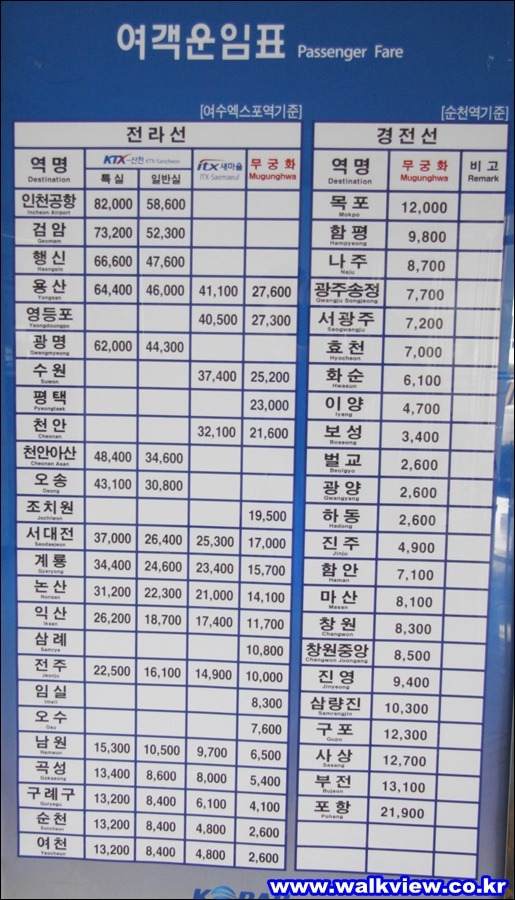 여객운임표 Passenger Fare
[여수엑스포역기준] [순천역기준]
전라선
역명 Destination KTX-산천 KTX-Sancheon itx 새마을 ITX-Saemaeul 무궁화 Mugunghwa
특실 일반실
인천공항 Incheon Airport 82,000 58,600
검암 Geomam 73,200 52,300
행신 Haengsin 66,600 47,600
용산 Yongsan 64,400 46,000 41,100 27,600
영등포 Yeongdeungpo 40,500 27,300
광명 Gwangmyeong 62,000 44,300
수원 Suwon 37,400 25,200
평택 Pyeongtaek 23,000
천안 Cheonan 32,100 21,600
천안아산 Cheonan Asan 48,400 34,600
오송 Osong 43,100 30,800
조치원 Jochiwon 19,500
서대전 Seodaejeon 37,000 26,400 25,300 17,000
계룡 Gyeryong 34,400 24,600 23,400 15,700
논산 Nonsan 31,200 22,300 21,000 14,100
익산 Iksan 26,200 18,700 17,400 11,700
삼례 Samrye 10,800
전주 Jeonju 22,500 16,100 14,900 10,000
임실 Imsil 8,300
오수 Osu 7,600
남원 Namwon 15,300 10,500 9,700 6,500
곡성 Gokseong 13,400 8,600 8,000 5,400
구례구 Guryegu 13,200 8,400 6,100 4,100
순천 Suncheon 13,200 8,400 4,800 2,600
여천 Yeocheon 13,200 8,400 4,800 2,600
경전선
역명 Destination 무궁화 Mugunghwa 비고 Remark
목포 Mokpo 12,000
함평 Hampyeong 9,800
나주 Naju 8,700
광주송정 Gwangju Songjeong 7,700
서광주 Seogwangju 7,200
효천 Hyocheon 7,000
화순 Hwasun 6,100
이양 Iyang 4,700
보성 Boseong 3,400
벌교 Beolgyo 2,600
광양 Gwangyang 2,600
하동 Hadong 2,600
진주 Jinju 4,900
함안 Haman 7,100
마산 Masan 8,100
창원 Changwon 8,300
창원중앙 Changwon Joongang 8,500
진영 Jinyeong 9,400
삼랑진 Samrangjin 10,300
구포 Gupo 12,300
사상 Sasang 12,700
부전 Bujeon 13,100
포항 Pohang 21,900
KORAIL
www.walkview.co.kr